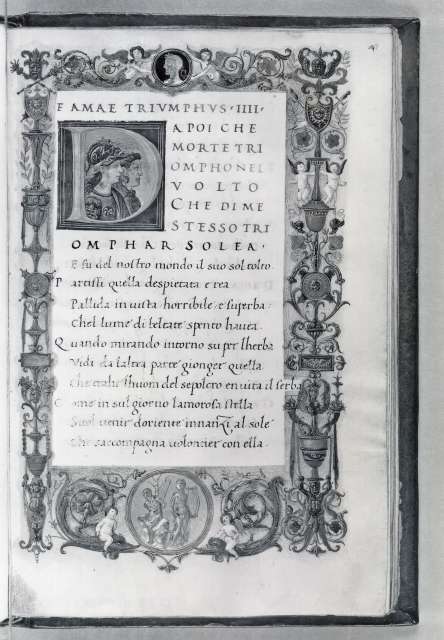 FAMAE TRIVMPHVS · IIII ·
DAPOI CHE
MORTE TRI
OMPHO NEL
VOLTO
CHE DI ME
STESSO TRI
OMPHAR SOLEA ·
E fu del nostro mondo il suo sol tolto
Partissi quella despietata e rea
Pallida in uista horribile e superba
Chel lume di beltate spento hauea
Quando mirando intorno su per lherba
Vidi da laltra parte gionger quella
Che trahe lhuom del sepolcro en uita il serba
Come in sul giorno lamorosa stella
Suol uenir doriente innanzi al sole
Che saccompagna uolontier con ella